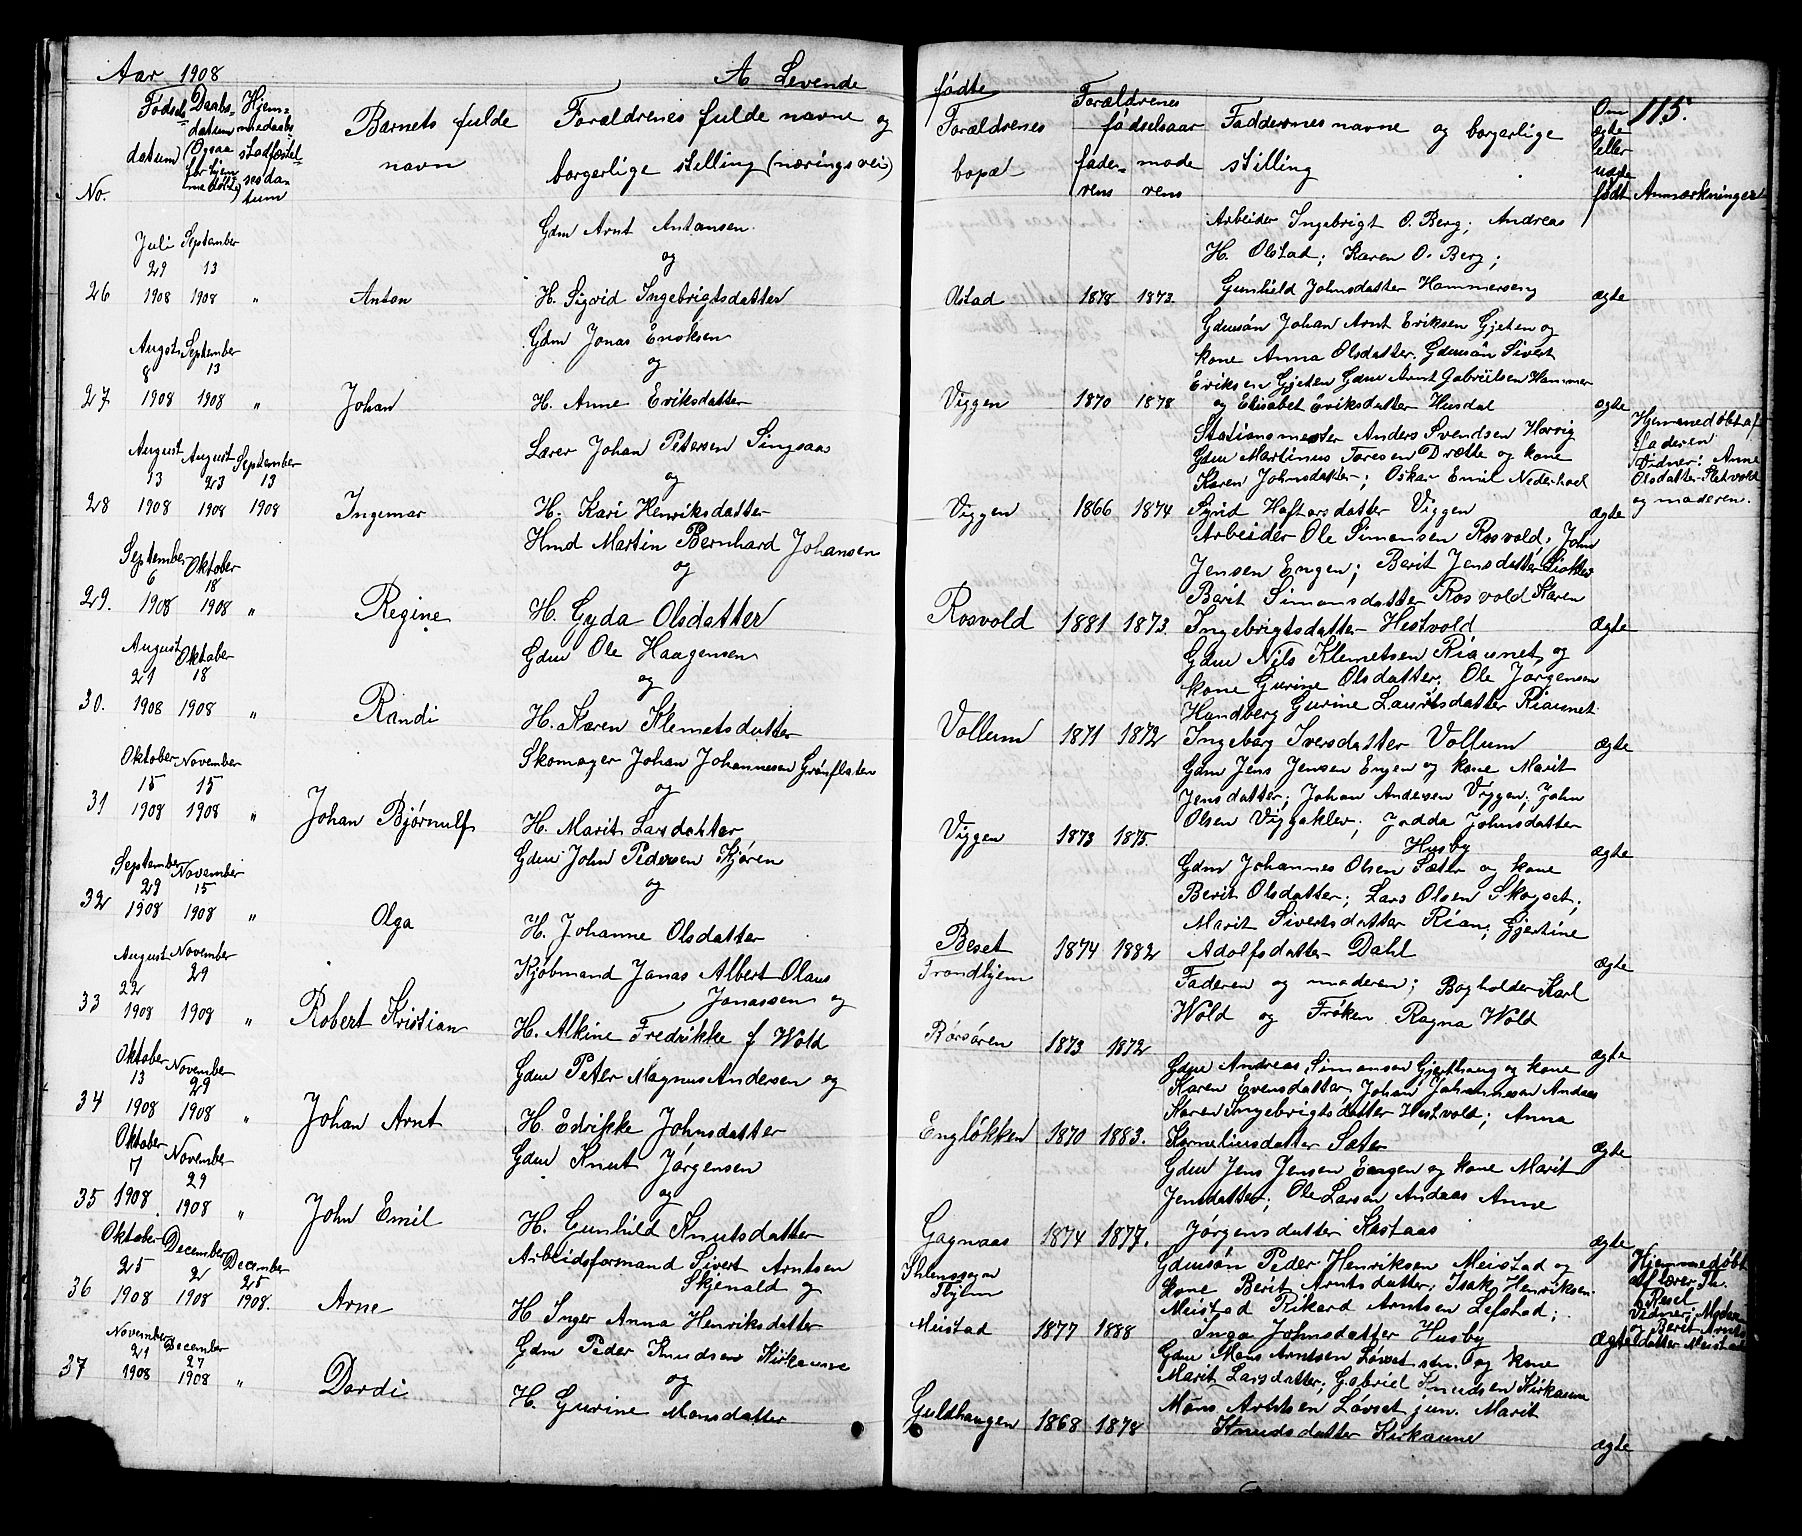 Aar 1908 A Levende fødte 115.
No. Fødselsdatum Daabsdatum (Ogsaa for hjemmedøbte) Hjemmedaabs stadfæstelsesdatum Barnets fulde navn Forældrenes fulde navne og borgerlige stilling (næringsvei) Forældrenes bopæl Forældrenes fødselsaar faderens moderens Faddernes navne og borgerlige stilling Om ægte eller uægte født Anmærkninger
Juli September Gdm Arnt Antonsen Arbeider Ingebrigt O. Berg; Andreas
29 13 og H. Olstad; Karen O. Berg;
26 1908 1908 " Anton H. Sigrid Ingebrigtsdatter Olstad 1878 1873 Gunhild Johnsdatter Hammerseng ægte
Gdm Jonas Enoksen Gdmsøn Johan Arnt Eriksen Gjeten og
August September og kone Anna Olsdatter. Gdmsøn Sivert
8 13 Eriksen Gjeten Gdm Arnt Gabrielsen Hammer
27 1908 1908 " Johan H. Anne Eriksdatter Viggen 1870 1878 og Elisabet Eriksdatter Husdal ægte
August August September Lærer Johan Petersen Singsaas Stationsmester Anders Svendsen Horrig Hjemmedøbt af
13 23 13 og Gdm Martinus Toresen Drætte og kone Faderen
Karen Johnsdatter; Oskar Emil Nederhoel Vidner: Anne
28 1908 1908 1908 Ingemar H. Kari Henriksdatter Viggen 1866 1874 Sigrid Haftorsdatter Viggen ægte Olsdatter Sletvold
og moderen.
September Oktober Hmd Martin Bernhard Johansen Arbeider Ole Simonsen Rosvold, John
6 18 og Jensen Engen; Berit Jensdatter
Berit Simonsdatter Rosvold Karen
29. 1908 1908 " Regine H. Gyda Olsdatter Rosvold 1881 1873. Ingebrigtsdatter Hestvold ægte
August Oktober Gdm Ole Haagensen Gdm Nils Klemetsen Riaunet og
21 18 og kone Gurine Olsdatter. Ole Jørgensen
Hundberg Gurine Lauritsdatter Riaunet
30. 1908 1908 " Randi H. Karen Klemetsdatter Vollum 1871 1872 Ingeborg Iversdatter Vollum ægte
Oktober November Skomager Johan Johannesen Grønflaten Gdm Jens Jensen Engen og kone Marit
15 15 og Jensdatter; Johan Andersen Viggen; John
31 1908 1908 " Johan Bjørnulf H. Marit Larsdatter Viggen 1873 1875. Olsen Viggaklev; Jodda Johnsdatter
Husby ægte
September November Gdm John Pedersen Kjøren Gdm Johannes Olsen Sæter og kone
29 15 og Berit Olsdatter; Lars Olsen Skogset;
Marit Sivertsdatter Rian; Gjertine
32 1908 1908 " Olga H. Johanne Olsdatter Beset 1874 1882 Adolfsdatter Dahl ægte
August November Kjøbmand Jonas Albert Olaus Trondhjem Faderen og moderen; Bogholder Karl
22 29 Jonassen og Wold og Frøken Ragna Wold
33 1908 1908 " Robert Kristian H. Alkine Fredrikke f Wold Børsøren 1873 1872 ægte
Oktober November Gdm Peter Magnus Andersen og Gdm Andreas Simonsen Gjerthaug og kone
13 29 Karen Evensdatter, Johan Johannesen Andaas
Karen Ingebrigtsdatter Hestvold; Anna
34 1908 1908 " Johan Arnt H. Edrikke Johnsdatter Engløkken 1870 1883. Korneliusdatter Sæter ægte
Oktober November Gdm Knut Jørgensen Gdm Jens Jensen Engen og kone Marit
7 29 og Jensdatter; Ole Larsen Andaas Anne
35 1908 1908 " John Emil H. Gunhild Knutsdatter Gagnaas 1874 1877. Jørgensdatter Kastaas ægte
Oktober December December Arbeidsformand Sivert Arntsen Gdmsøn Peder Henriksen Meistad og Hjemmedøbt
25 2 25 Skjenald og Thjlm kone Berit Arntsdatter; Isak Henriksen af lærer Th.
Meistad Rikard Arntsen Lefstad; Resel
36 1908 1908 1908. Arne H. Inger Anna Henriksdatter Meistad 1877 1888 Inga Johnsdatter Husby ægte Vidner: Moderen og Berit Arntsdatter Meistad
November December Gdm Peder Knudsen Kirkaune Gdm Mons Arntsen Løvset sen. og kone
21 27 og Marit Larsdatter; Gabriel Knudsen Kirkaune
Mons Arntsen Løvset jun. Marit
37 1908 1908 " Dordi H. Gurine Monsdatter Guldhaugen 1868 1878 Knudsdatter Kirkaune ægte